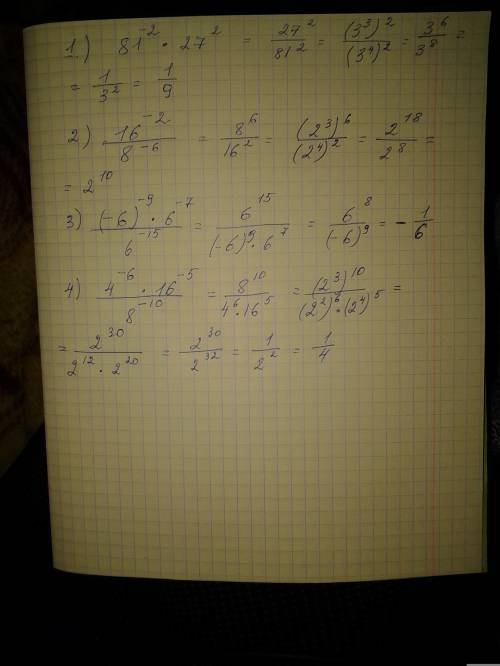 1) 81⁻² · 27² = 27²/81² = (3³)²/(3⁴)² = 3⁶/3⁸ =
= 1/3² = 1/9
2) 16⁻²/8⁻⁶ = 8⁶/16² = (2³)⁶/(2⁴)² = 2¹⁸/2⁸ =
= 2¹⁰
3) (-6)⁻⁹ · 6⁻⁷/6⁻¹⁵ = 6¹⁵/(-6)⁹ · 6⁷ = 6⁸/(-6)⁹ = - 1/6
4) 4⁻⁶ · 16⁻⁵/8⁻¹⁰ = 8¹⁰/4⁶ · 16⁵ = (2³)¹⁰/(2²)⁶ · (2⁴)⁵ =
= 2³⁰/2¹² · 2²⁰ = 2³⁰/2³² = 1/2² = 1/4